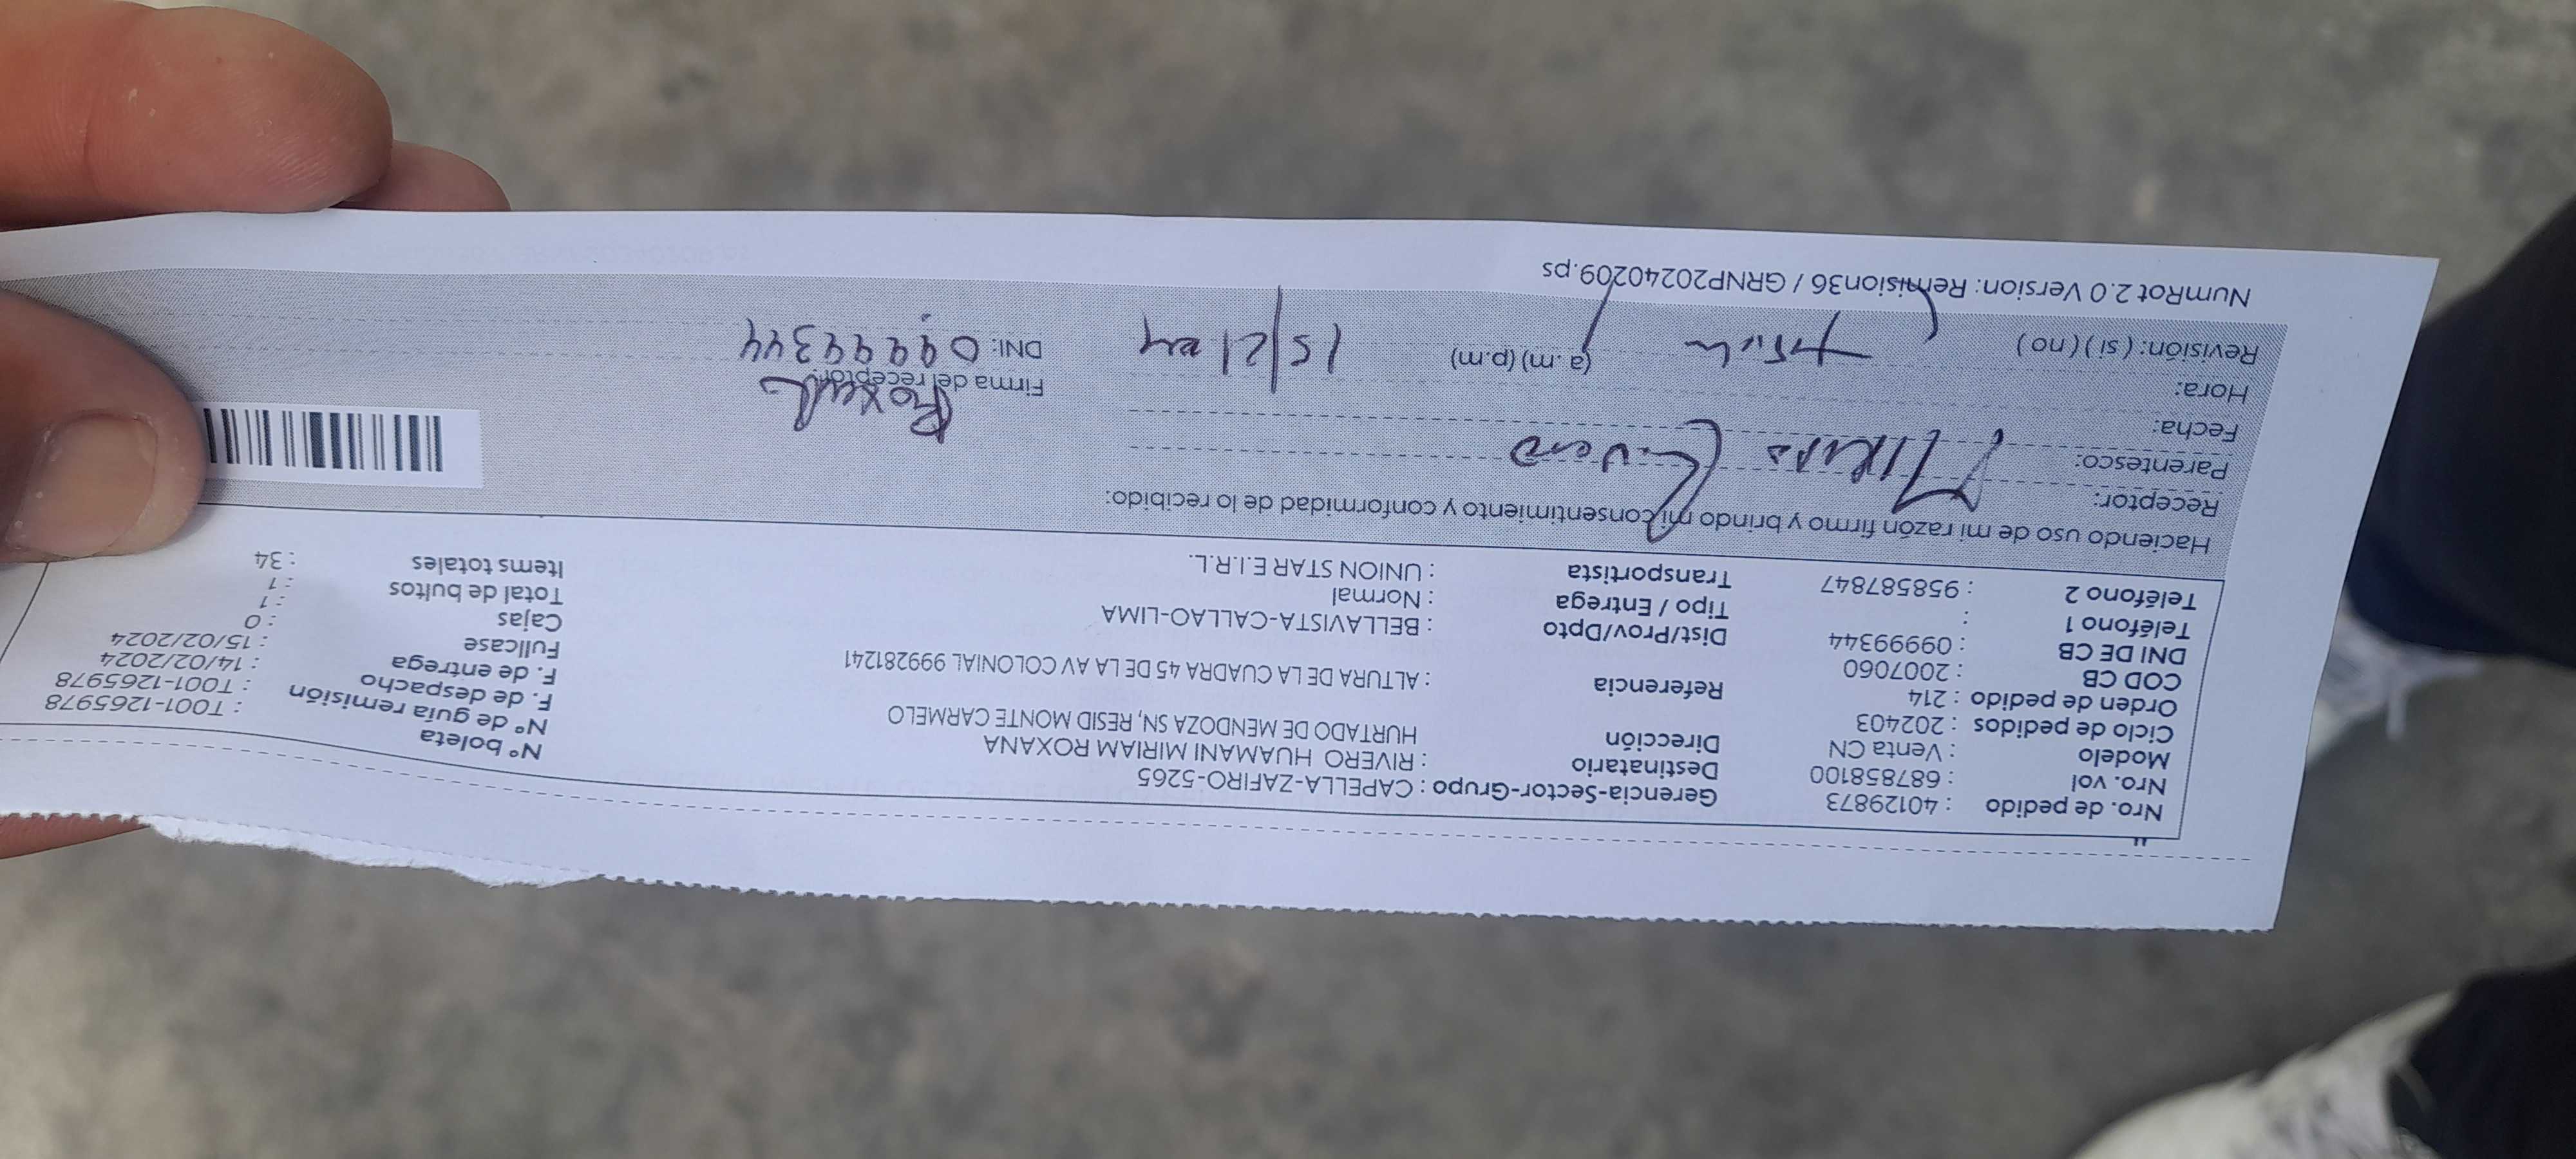 Nro. de pedido : 40129873 Gerencia-Sector-Grupo : CAPELLA-ZAFIRO-5265
Nro. vol : 687858100 Destinatario : RIVERO HUAMANI MIRIAM ROXANA N° boleta : T001-1265978
Modelo : Venta CN Dirección HURTADO DE MENDOZA SN, RESID MONTE CARMELO N° de guía remisión : T001-1265978
Ciclo de pedidos : 202403 F. de despacho : 14/02/2024
Orden de pedido : 214 Referencia : ALTURA DE LA CUADRA 45 DE LA AV COLONIAL 999281241 F. de entrega : 15/02/2024
COD CB : 2007060 Fullcase : 0
DNI DE CB : 09999344 Dist/Prov/Dpto : BELLAVISTA-CALLAO-LIMA Cajas : 1
Teléfono 1 : Tipo / Entrega : Normal Total de bultos : 1
Teléfono 2 : 958587847 Transportista : UNION STAR E.I.R.L. Items totales : 34
Haciendo uso de mi razón firmo y brindo mi consentimiento y conformidad de lo recibido:
Receptor:
Parentesco:
Fecha:
Hora: Firma del receptor:
Revisión: ( si ) ( no ) (a.m) (p.m) 15/2/24 DNI: 09999344
NumRot 2.0 Version: Remision36 / GRNP20240209.ps